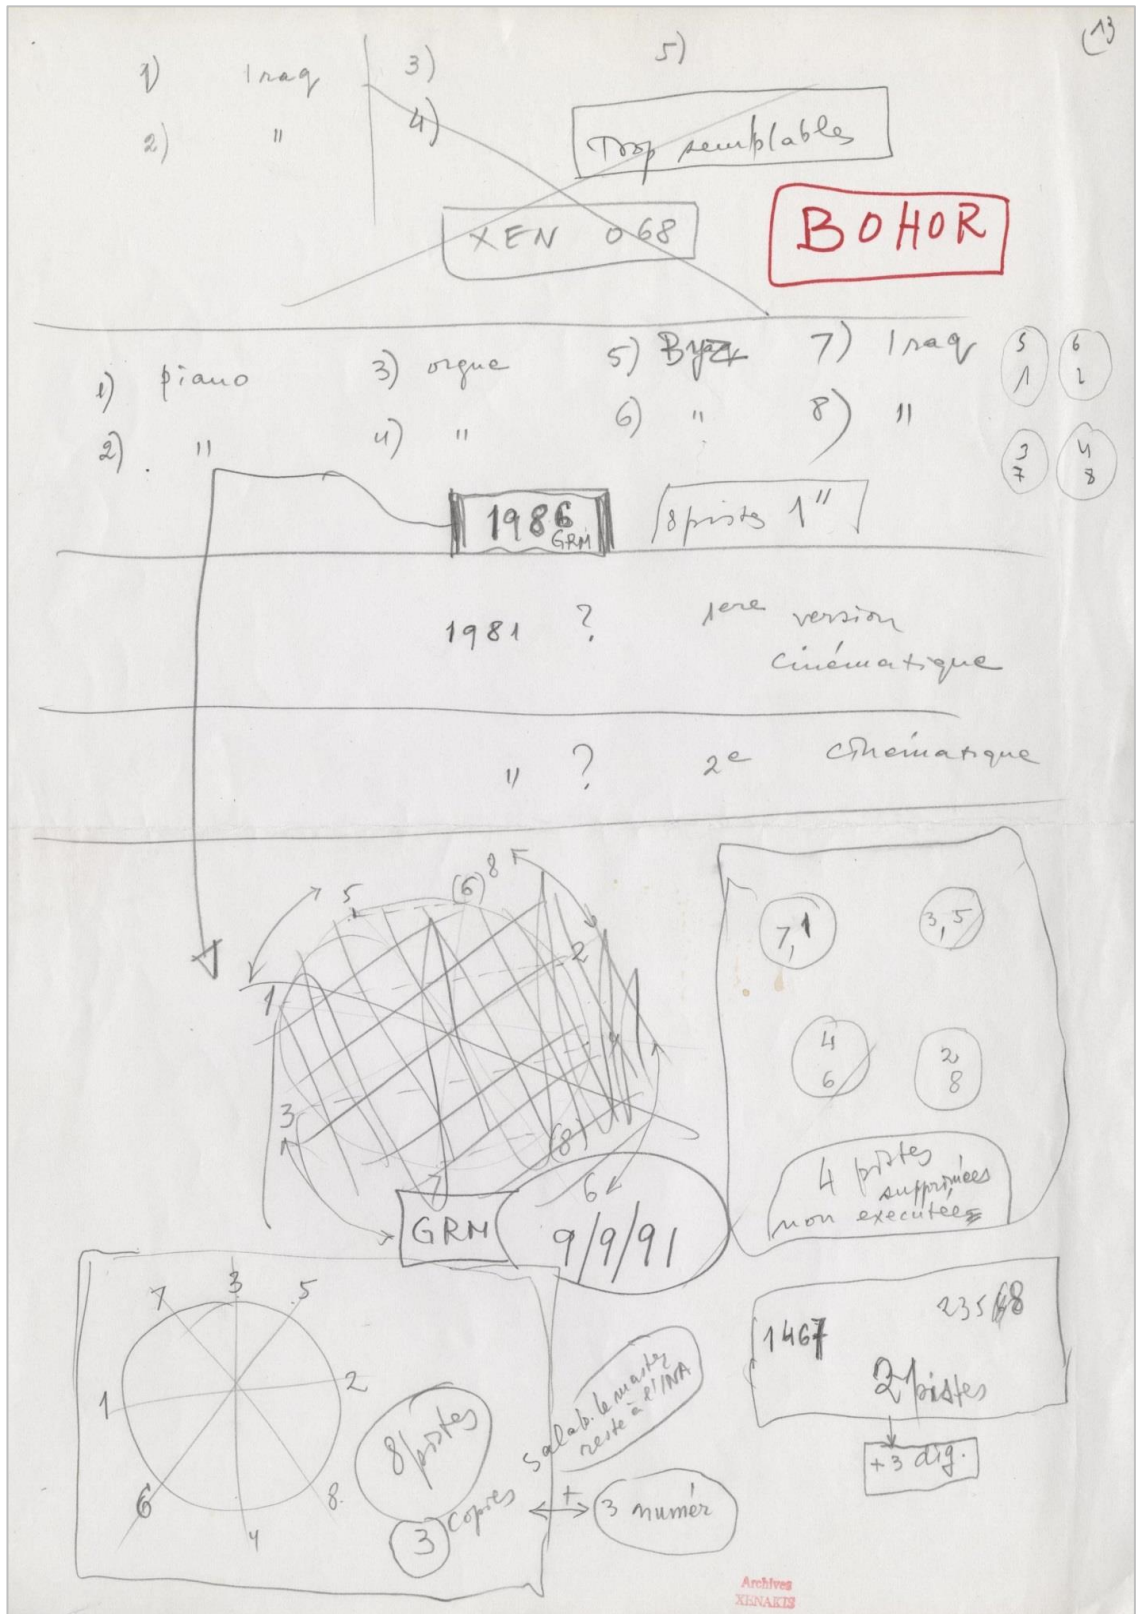 13
1) Iraq 3) 5)
2) " 4)
Trop semblables
XEN 068
BOHOR
1) piano 3) orgue 5) Byz 7) Iraq
2) " 4) " 6) " 8) "
5 6
1 2
3 4
7 8
1986
GRM
8 pistes 1"
1981 ? 1ere version
cinématique
" ? 2e cinématique
5 (6) 8
1 2
3 4
7 (8) 6
GRM
9/9/91
7,1 3,5
4 2
6 8
4 pistes
supprimées
non executées
7 3 5
1 2
6 4 8
8 pistes
3 copies
+
3 numér
Salab. le master
reste à l'INA
1467
23568
2 pistes
+3 dig.
Archives
XENAKIS